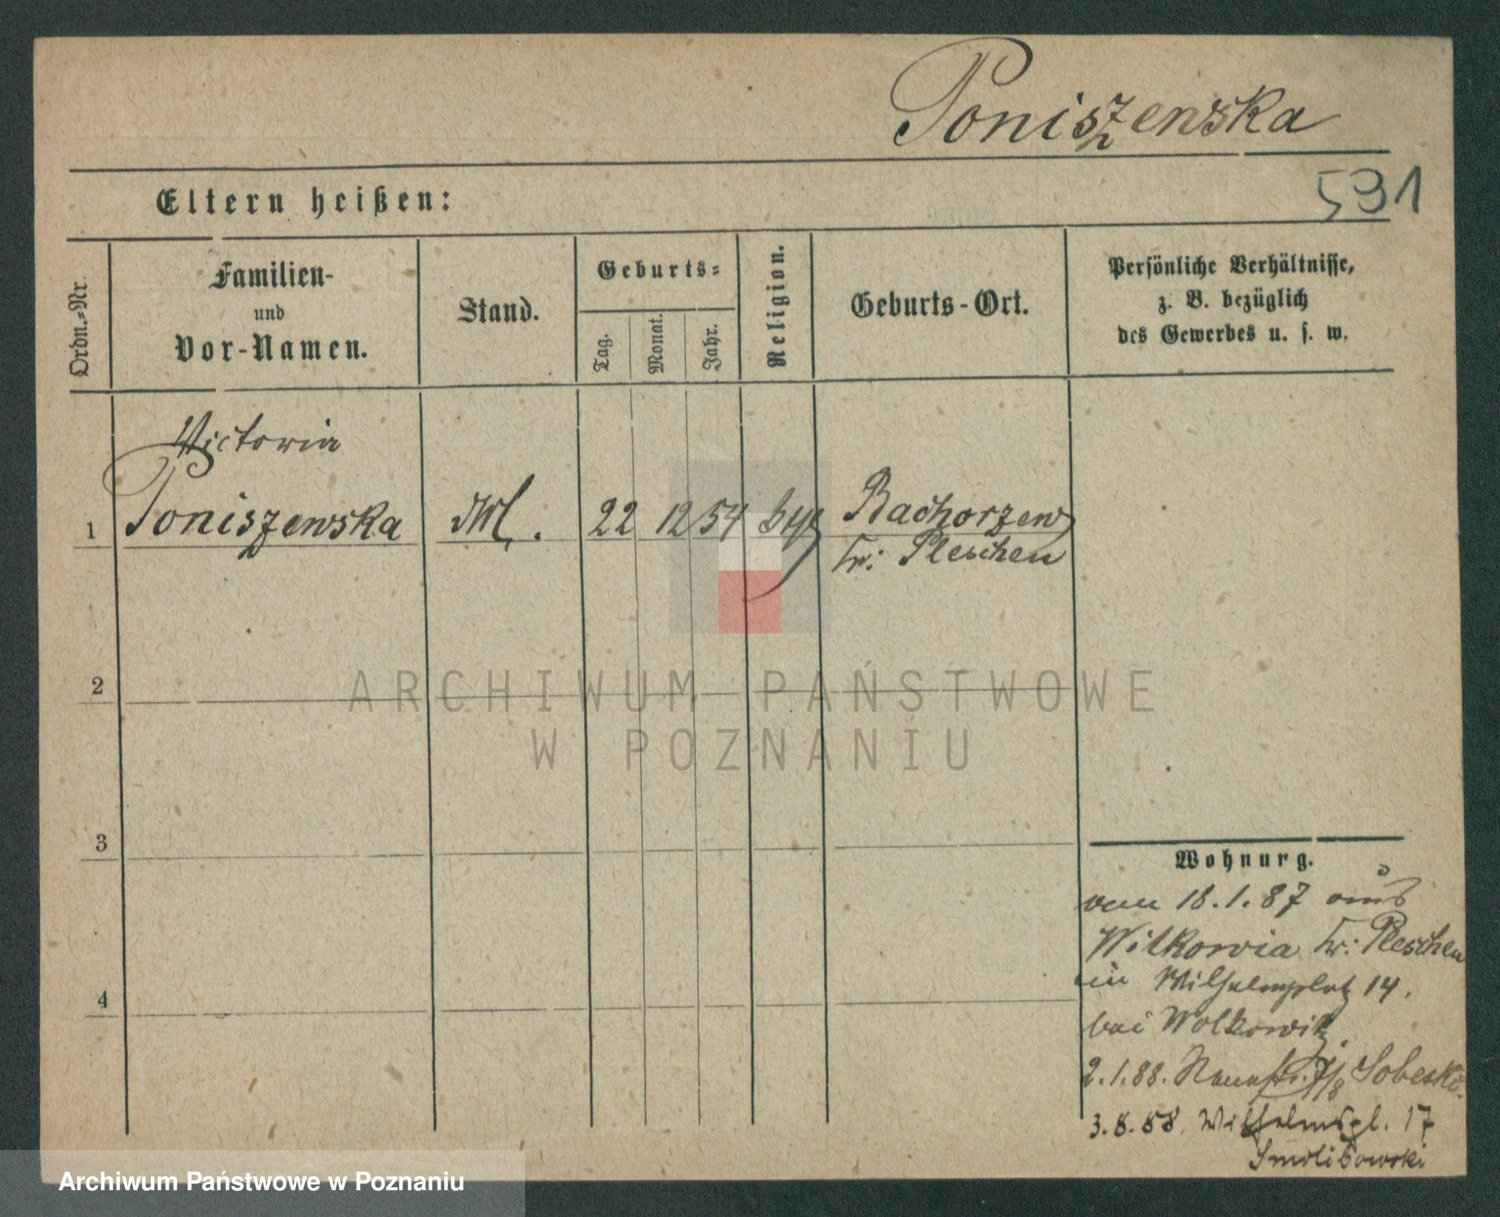 Poniszewska
591
Eltern heißen:
Ordn.-Nr.
Familien-
und
Vor-Namen.
Stand.
Geburts-
Tag.
Monat.
Jahr.
Religion.
Geburts-Ort.
Persönliche Verhältnisse,
z. B. bezüglich
des Gewerbes u. s. w.
Victoria
1 Poniszewska 22 12 54 Bachorzew
Kr: Pleschen
2
3
4
ARCHIWUM PAŃSTWOWE
W POZNANIU
Wohnung.
18.1.87 aus
Witkowia Kr: Pleschen
Wilhelmplatz 14.
bei Wolkowitz
2.1.88. 7/8 Sobeski.
3.8.88. Wilhelmspl. 17
Smolibowski
Archiwum Państwowe w Poznaniu